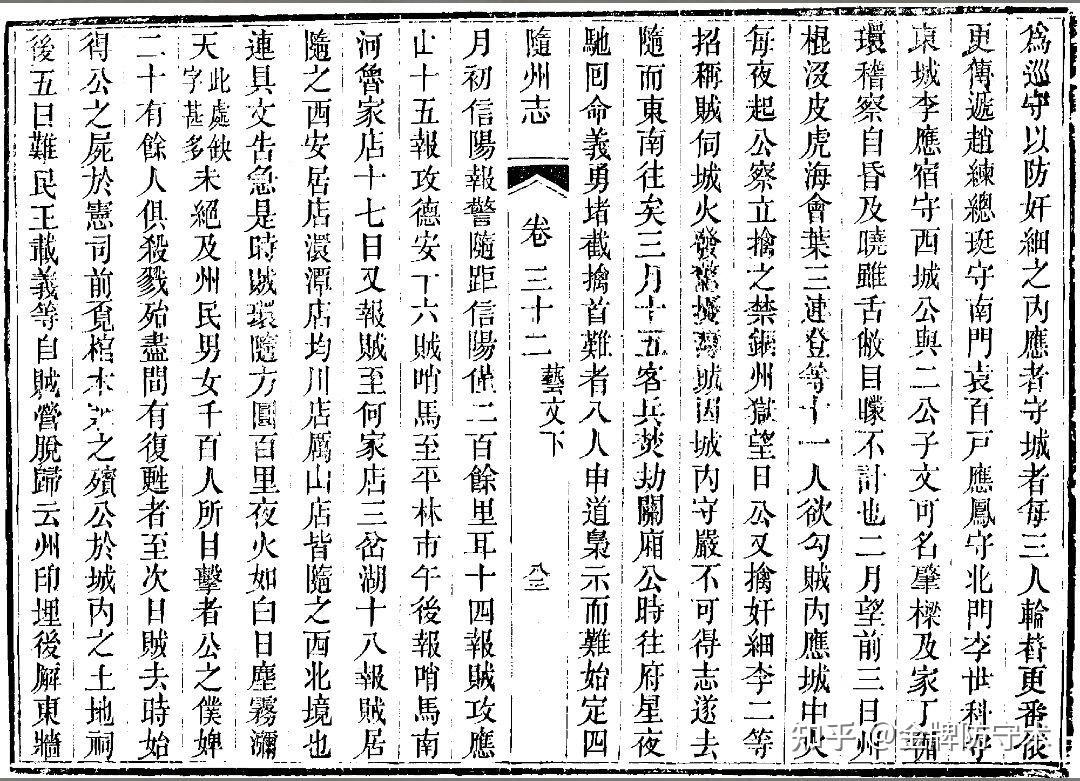 為巡守以防奸細之内應者守城者每三人輪替更番夜
更傳遞趙練總珽守南門袁百戸應鳳守北門李世科守
東城李應宿守西城公與二公子文可名肇樑及家丁
環稽察自昏及曉雖舌敝目矇不計也二月望前三日州
棍沒皮虎海會葉三連登等十一人欲勾賊内應城中火
每夜起公察立擒之禁錮州獄望日公又擒奸細李二等
招稱賊伺城火發攻城因城内守嚴不可得志遂去
隨而東南往矣三月十五客兵焚劫關廂公時往府星夜
馳囘命義勇堵截擒首難者八人申道梟示而難始定四
隨州志 卷三十二 藝文下 八三
月初信陽報警隨距信陽僅二百餘里耳十四報賊攻應
山十五報攻德安十六賊哨馬至平林市午後報哨馬南
河魯家店十七日又報賊至何家店三岔湖十八報賊居
隨之西安居店澴潭店均川店厲山店皆隨之西北境也
連具文告急是時賊環隨方圓百里夜火如白日塵霧瀰
天此處缺字甚多未絕及州民男女千百人所目擊者公之僕婢
二十有餘人俱殺戮殆盡間有復甦者至次日賊去時始
得公之屍於憲司前覓棺木之殯公於城内之土地祠
後五日難民王載義等自賊營脫歸云州印埋後廨東牆
知乎 @金牌防守李